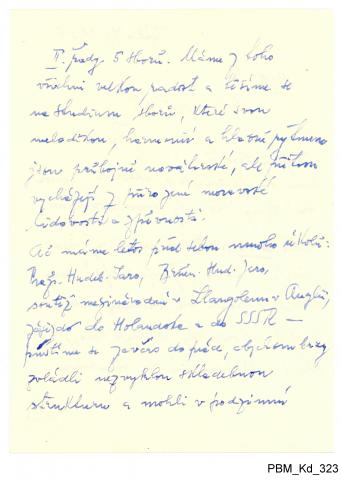 II. řady 5 sborů. Máme z toho
všichni velkou radost a těšíme se
na studium sborů, které svou
melodikou, harmonií a hlavně rytmem
jsou průbojně novátorské, ale přitom
vycházejí z přirozené moravské
lidovosti a zpěvnosti.
Ač máme letos před sebou mnoho úkolů:
Praž. Hudeb. Jaro, Brněn. Hud. Jaro,
soutěž mezinárodní v Llangollenu v Anglii,
zájezd do Holandska a do SSSR —
pustíme se zavčas do práce, abychom brzy
zvládli nezvyklou skladebnou
strukturu a mohli v podzimní
PBM_Kd_323